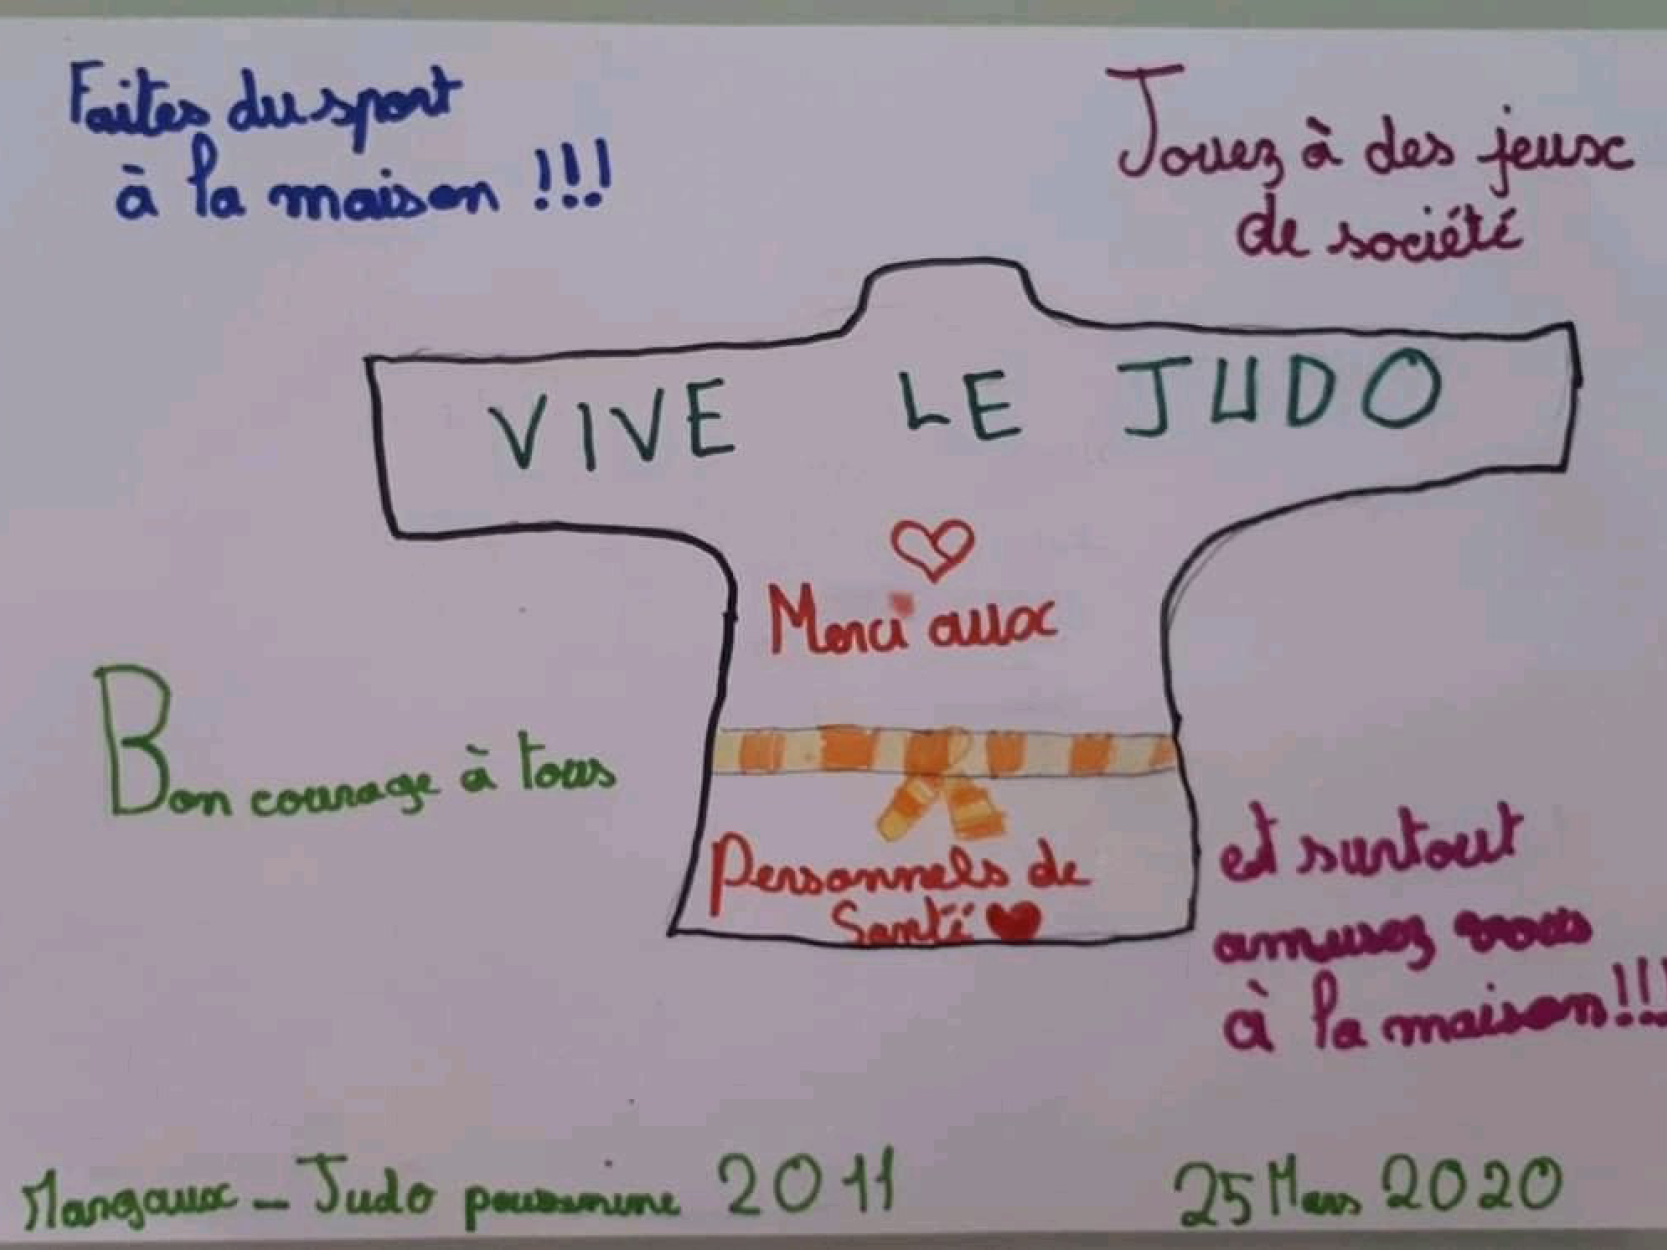 Faites du sport
à la maison !!!
Jouez à des jeux
de société
VIVE LE JUDO
Merci aux
Personnels de
Santé
Bon courage à tous
et surtout
amusez vous
à la maison!!!
Margaux - Judo poussinine 2011
25 Mars 2020